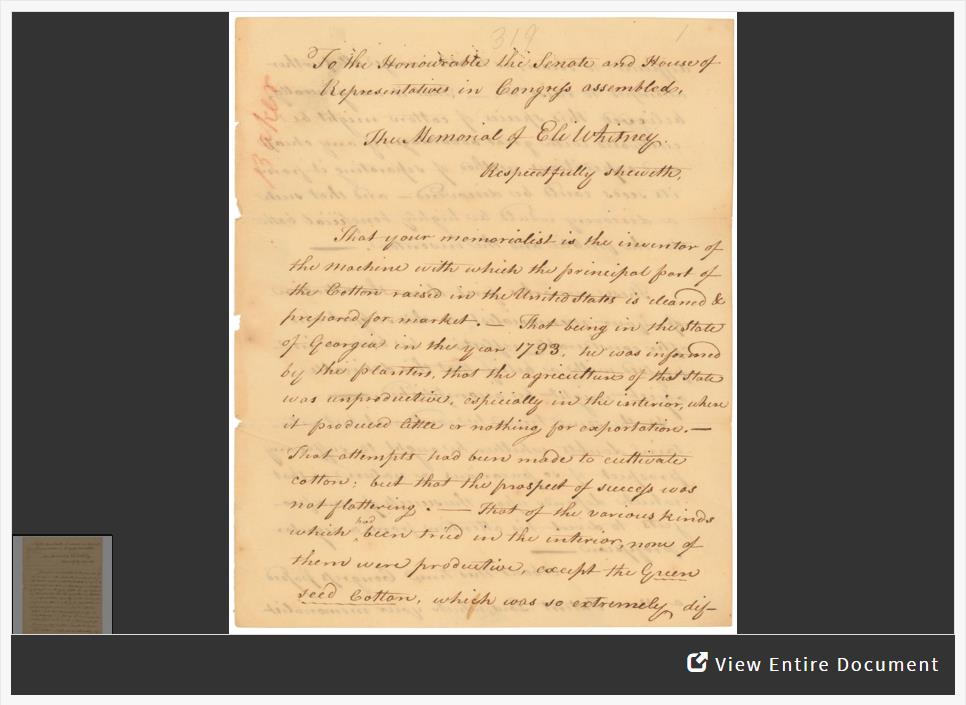 319
1
To the Honourable the Senate and House of
Representatives in Congress assembled,
The Memorial of Eli Whitney.
Respectfully sheweth,
Baker
That your memorialist is the inventor of
the machine with which the principal part of
the Cotton raised in the United States is cleaned &
prepared for market. — That being in the State
of Georgia in the year 1793, he was informed
by the planters, that the agriculture of that State
was unproductive, especially in the interior, where
it produced little or nothing for exportation. —
That attempts had been made to cultivate
cotton; but that the prospect of success was
not flattering. — That of the various kinds
which had been tried in the interior, none of
them were productive, except the Green
seed Cotton, which was so extremely dif-
View Entire Document